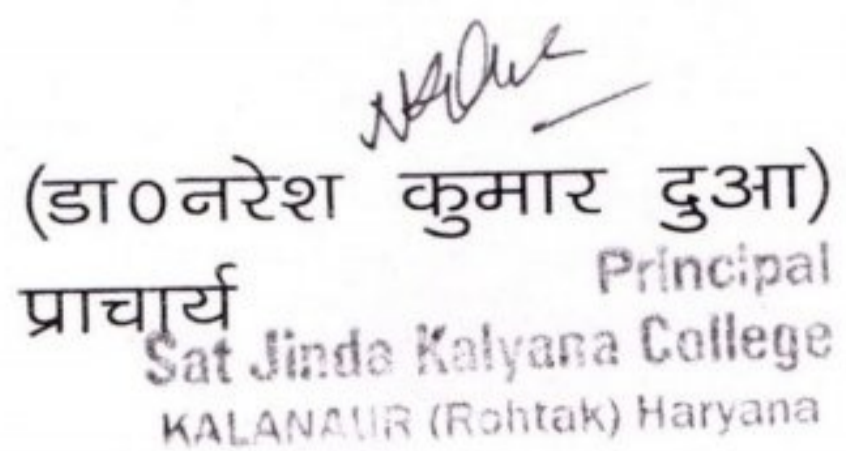 (डा०नरेश कुमार दुआ)
प्राचार्य
Principal
Sat Jinda Kalyana College
KALANAUR (Rohtak) Haryana